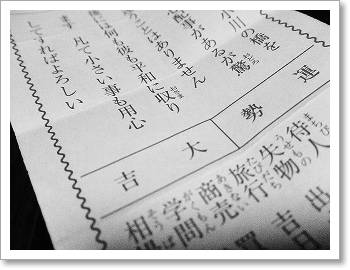 小川の橋を
配事があるが驚
ことはありません
に何も彼も平和に収り
ます
凡て小さい事も用心
してすればよろしい
運勢
大吉
待人
失物
旅行
商売
学問
相場
出
吉日